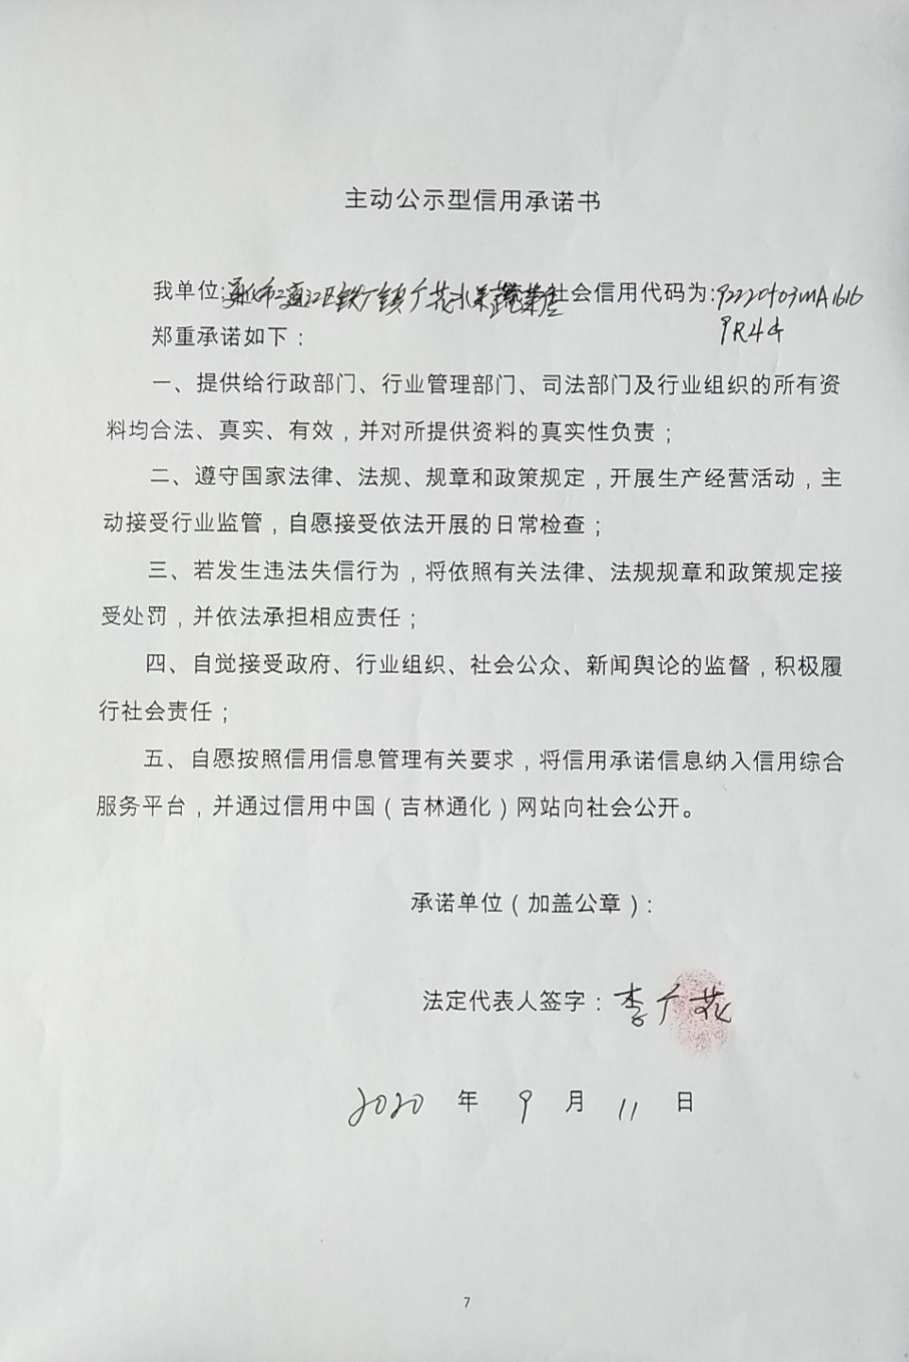 主动公示型信用承诺书
我单位:通化市二道江区铁厂镇广花水果蔬菜店社会信用代码为:92220403MA1616
9R4G
郑重承诺如下：
一、提供给行政部门、行业管理部门、司法部门及行业组织的所有资
料均合法、真实、有效，并对所提供资料的真实性负责；
二、遵守国家法律、法规、规章和政策规定，开展生产经营活动，主
动接受行业监管，自愿接受依法开展的日常检查；
三、若发生违法失信行为，将依照有关法律、法规规章和政策规定接
受处罚，并依法承担相应责任；
四、自觉接受政府、行业组织、社会公众、新闻舆论的监督，积极履
行社会责任；
五、自愿按照信用信息管理有关要求，将信用承诺信息纳入信用综合
服务平台，并通过信用中国（吉林通化）网站向社会公开。
承诺单位（加盖公章）：
法定代表人签字：李广花
2020 年 9 月 11 日
7